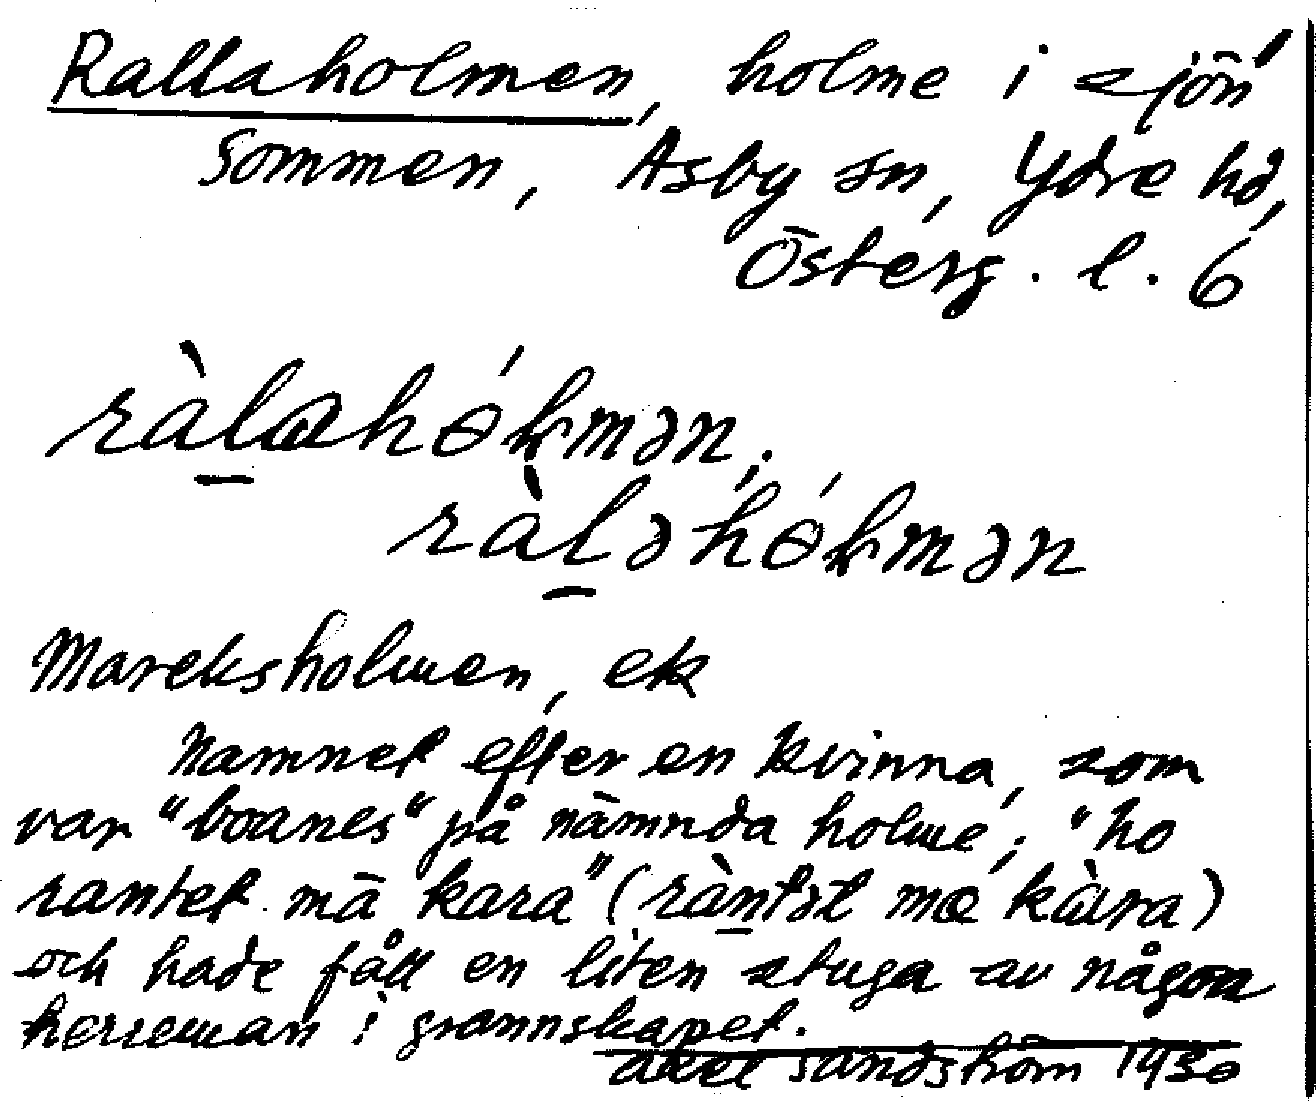 Rallaholmen, holme i sjön
Sommen, Asby sn, Ydre hd,
Österg. l. 6
ràlahólmən;
ràləhólmən
Mareksholmen, ek
Namnet efter en kvinna, som
var "boanes" på nämnda holme; "ho
rantet mä kara" (ràntət mæ kàra)
och hade fått en liten stuga av någon
herreman i grannskapet.
Axel Sandström 1930